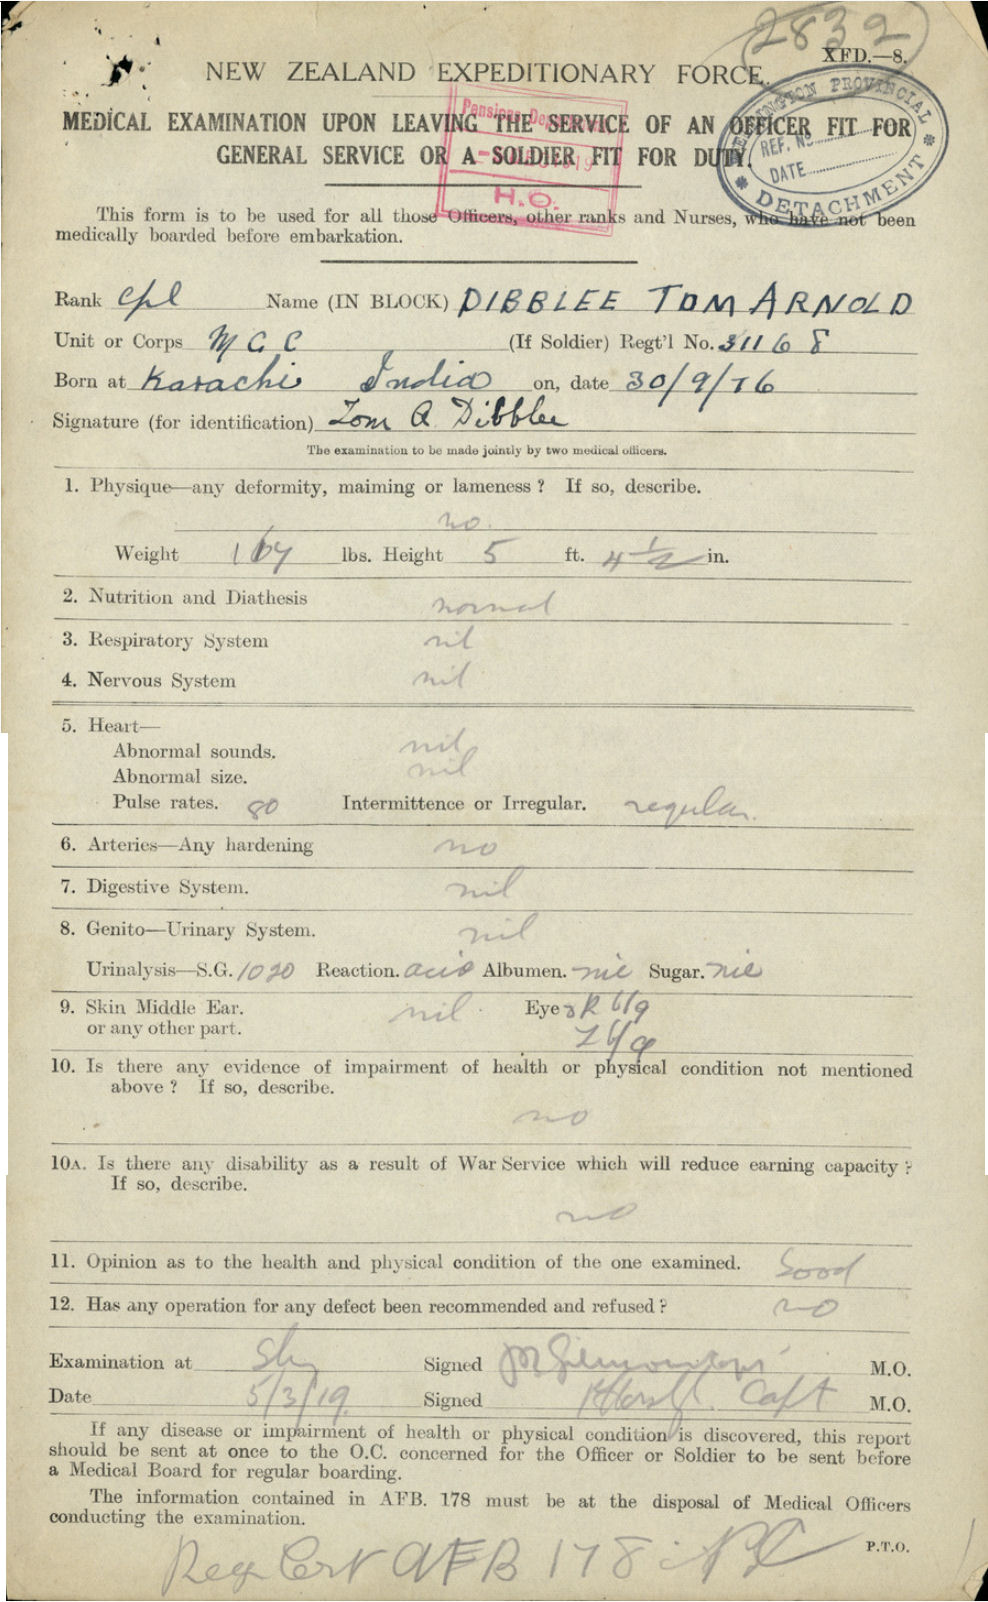 2832
XFD.—8.
NEW ZEALAND EXPEDITIONARY FORCE.
MEDICAL EXAMINATION UPON LEAVING THE SERVICE OF AN OFFICER FIT FOR
GENERAL SERVICE OR A SOLDIER FIT FOR DUTY.
Pensions Department
H.O.
WELLINGTON PROVINCIAL
REF. No
DATE
DETACHMENT
This form is to be used for all those Officers, other ranks and Nurses, who have not been
medically boarded before embarkation.
Rank Cpl Name (IN BLOCK) DIBBLEE TOM ARNOLD
Unit or Corps MGC (If Soldier) Regt'l No. 31168
Born at Karachi India on, date 30/9/76
Signature (for identification) Tom A. Dibblee
The examination to be made jointly by two medical officers.
1. Physique—any deformity, maiming or lameness? If so, describe.
no.
Weight lbs. Height 5 ft. 4½ in.
2. Nutrition and Diathesis normal
3. Respiratory System nil
4. Nervous System nil
5. Heart—
Abnormal sounds. nil
Abnormal size. nil
Pulse rates. 80 Intermittence or Irregular. regular.
6. Arteries—Any hardening no
7. Digestive System. nil
8. Genito—Urinary System. nil
Urinalysis—S.G. 1020 Reaction. acid Albumen. nil Sugar. nil
9. Skin Middle Ear. nil. Eyes R 6/9
or any other part. L 6/9
10. Is there any evidence of impairment of health or physical condition not mentioned
above? If so, describe.
no
10A. Is there any disability as a result of War Service which will reduce earning capacity?
If so, describe.
no
11. Opinion as to the health and physical condition of the one examined. Good
12. Has any operation for any defect been recommended and refused? no
Examination at Signed M.O.
Date 5/3/19. Signed Capt M.O.
If any disease or impairment of health or physical condition is discovered, this report
should be sent at once to the O.C. concerned for the Officer or Soldier to be sent before
a Medical Board for regular boarding.
The information contained in AFB. 178 must be at the disposal of Medical Officers
conducting the examination.
P.T.O.
AFB 178